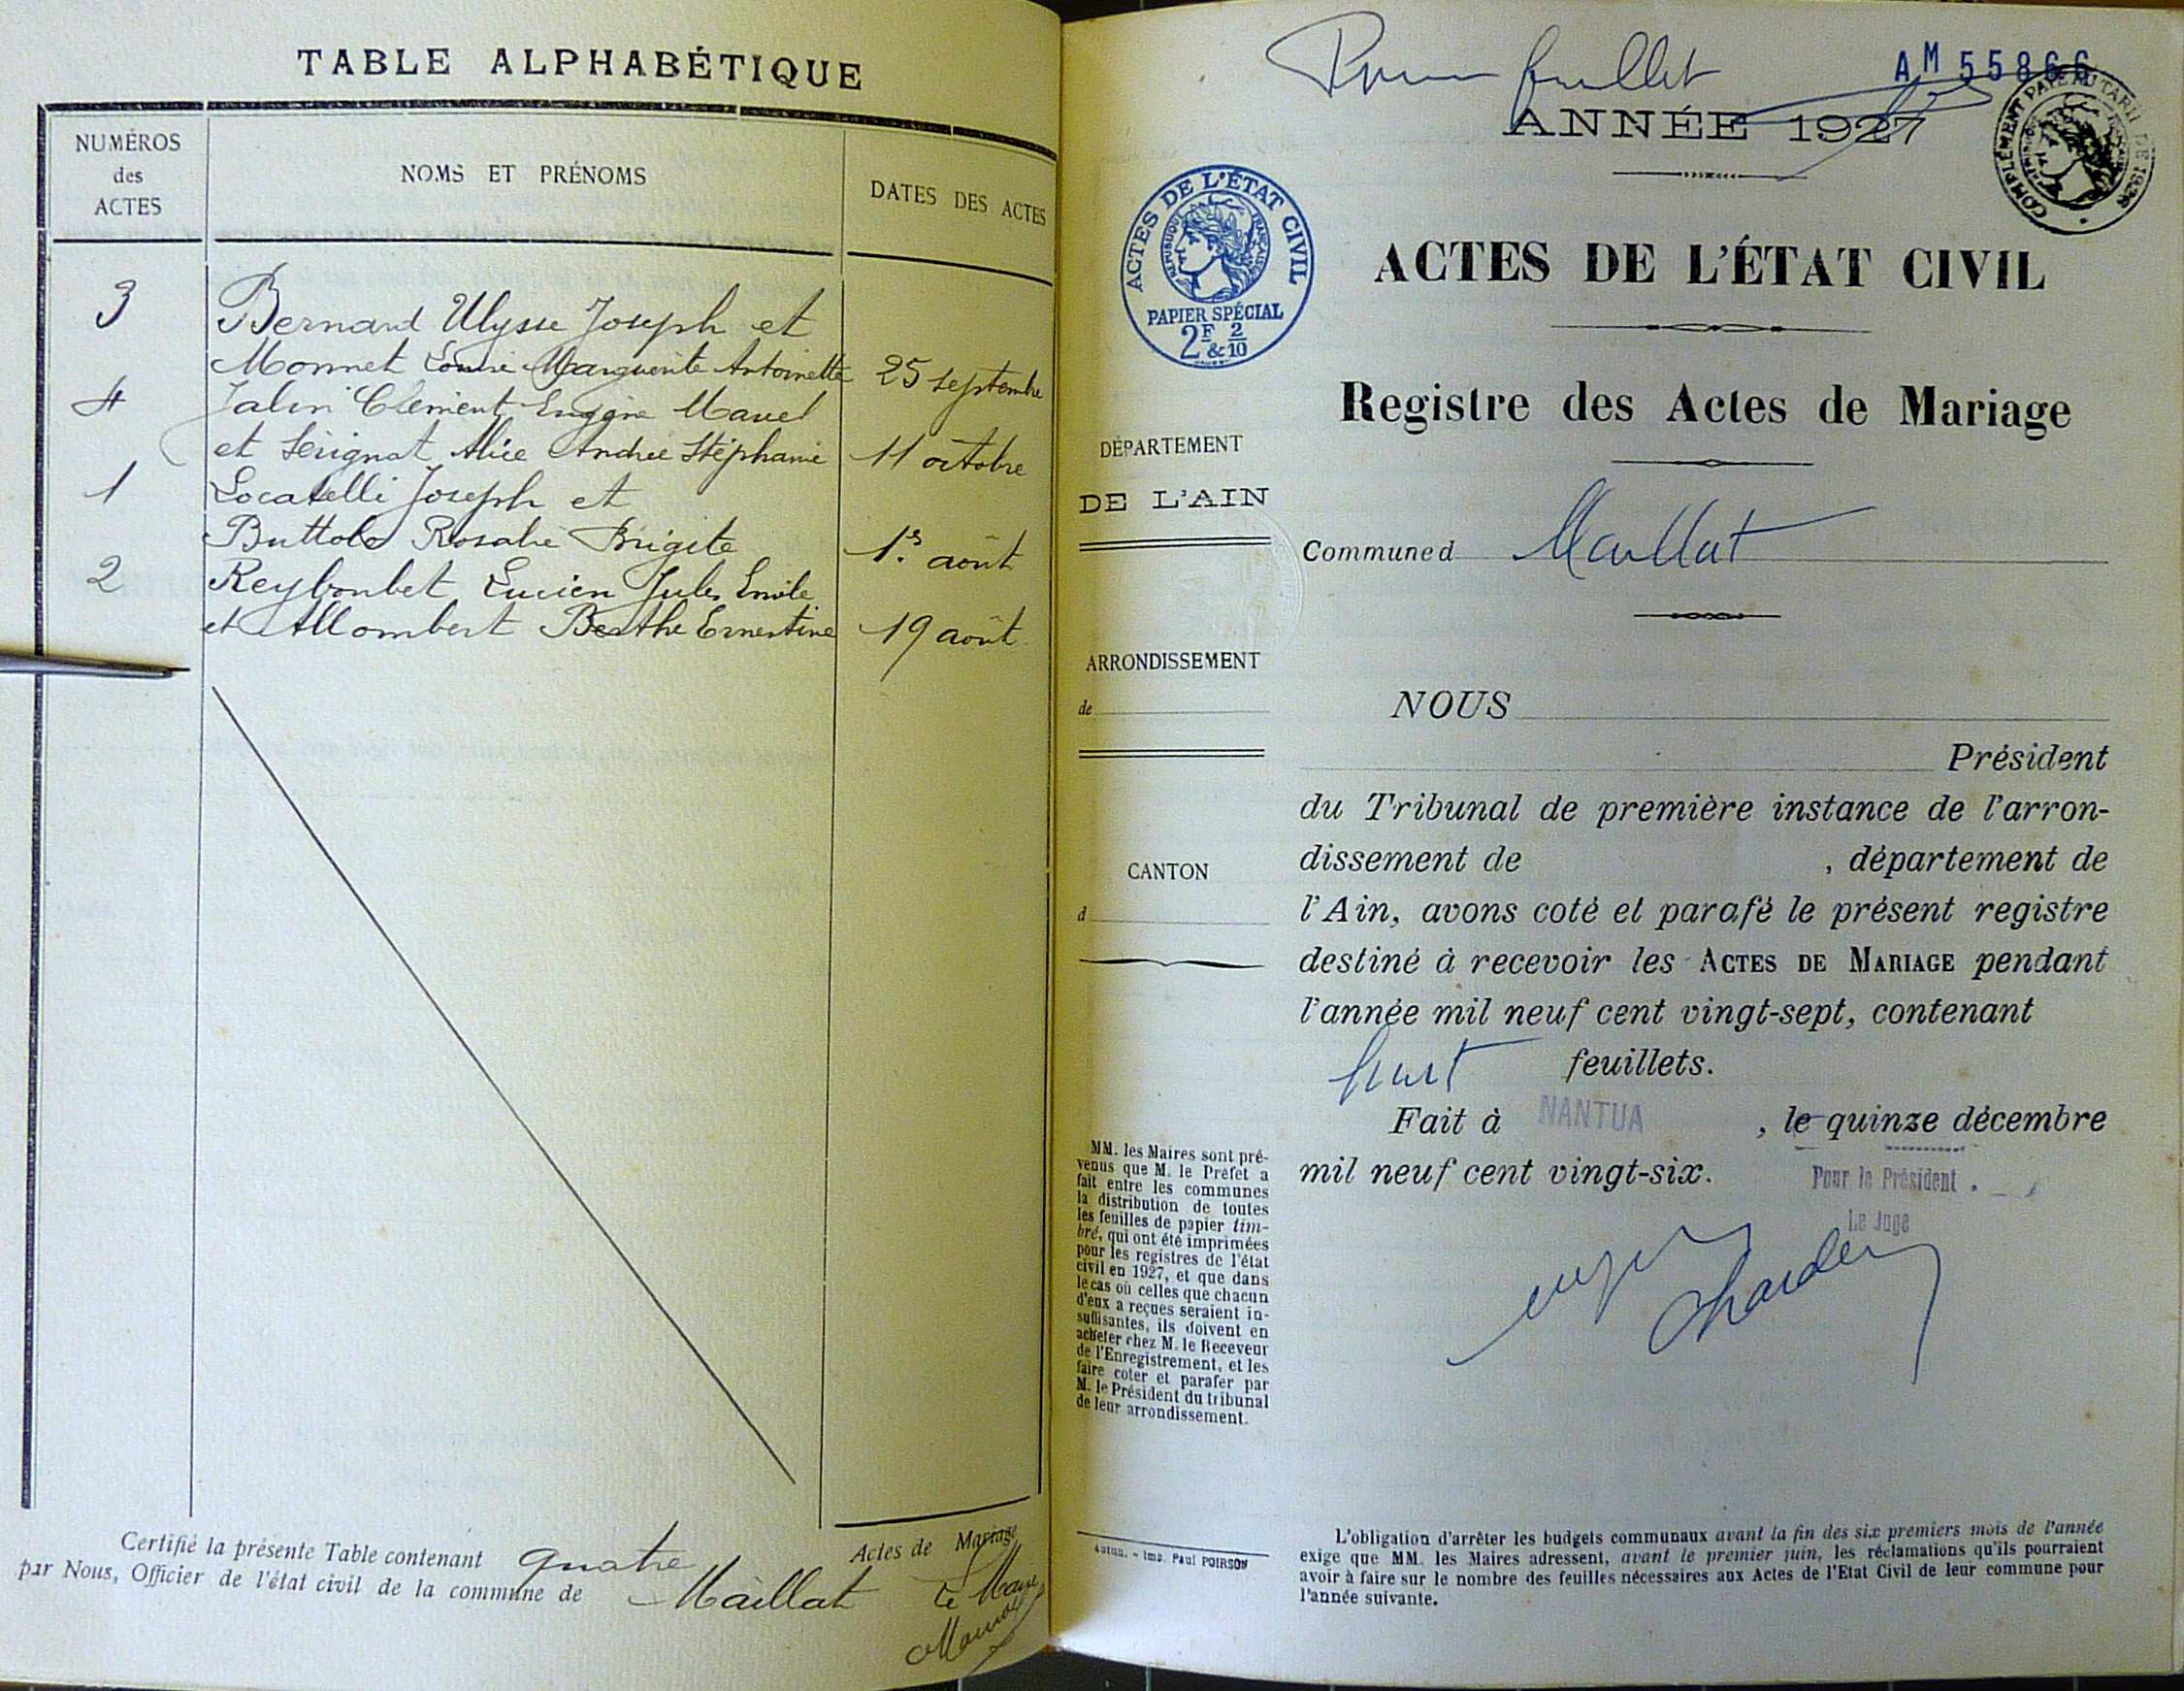 TABLE ALPHABÉTIQUE
NUMÉROS
des
ACTES
NOMS ET PRÉNOMS
DATES DES ACTES
3
Bernard Ulysse Joseph et
Monnet Louise Marguerite Antoinette 25 septembre
4
Jalin Clément Eugène Marcel
et Sérignat Alice Andrée Stéphanie 11 octobre
1
Locatelli Joseph et
Buttolo Rosalie Brigite 1er août
2
Reyboubet Lucien Jules Emile
et Allombert Berthe Ernestine 19 août
Certifié la présente Table contenant quatre Actes de Mariage
par Nous, Officier de l'état civil de la commune de Maillat
Le Maire
feuillet
AM 55866
ANNÉE 1927
COMPLÉMENT PAYÉ AU TARIF DE
ACTES DE L'ÉTAT CIVIL
RÉPUBLIQUE FRANÇAISE
PAPIER SPÉCIAL
2F & 2/10
ACTES DE L'ÉTAT CIVIL
Registre des Actes de Mariage
DÉPARTEMENT
DE L'AIN
Commune d Maillat
ARRONDISSEMENT
de
CANTON
d
NOUS
Président
du Tribunal de première instance de l'arron-
dissement de , département de
l'Ain, avons coté et parafé le présent registre
destiné à recevoir les ACTES DE MARIAGE pendant
l'année mil neuf cent vingt-sept, contenant
huit feuillets.
Fait à NANTUA , le quinze décembre
mil neuf cent vingt-six.
Pour le Président
Le Juge
MM. les Maires sont pré-
venus que M. le Préfet a
fait entre les communes
la distribution de toutes
les feuilles de papier tim-
bré, qui ont été imprimées
pour les registres de l'état
civil en 1927, et que dans
le cas où celles que chacun
d'eux a reçues seraient in-
suffisantes, ils doivent en
acheter chez M. le Receveur
de l'Enregistrement, et les
faire coter et parafer par
M. le Président du tribunal
de leur arrondissement.
Autun. – Imp. Paul POIRSON
L'obligation d'arrêter les budgets communaux avant la fin des six premiers mois de l'année
exige que MM. les Maires adressent, avant le premier juin, les réclamations qu'ils pourraient
avoir à faire sur le nombre des feuilles nécessaires aux Actes de l'Etat Civil de leur commune pour
l'année suivante.